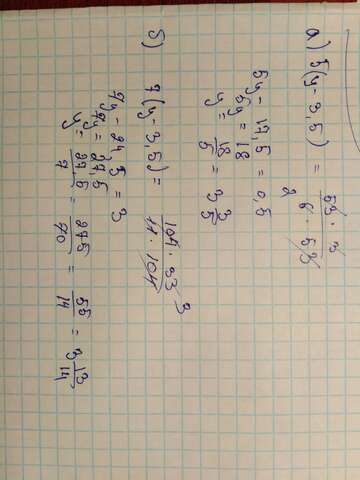 а) 5(y - 3,5) = 53 · 3 / 6 · 53 2
5y - 17,5 = 0,5
5y = 18
y = 18/5 = 3 3/5
б) 7(y - 3,5) = 104 · 33 3 / 11 · 104
7y - 24,5 = 3
7y = 27,5
y = 27,5/7 = 275/70 = 55/14 = 3 13/14